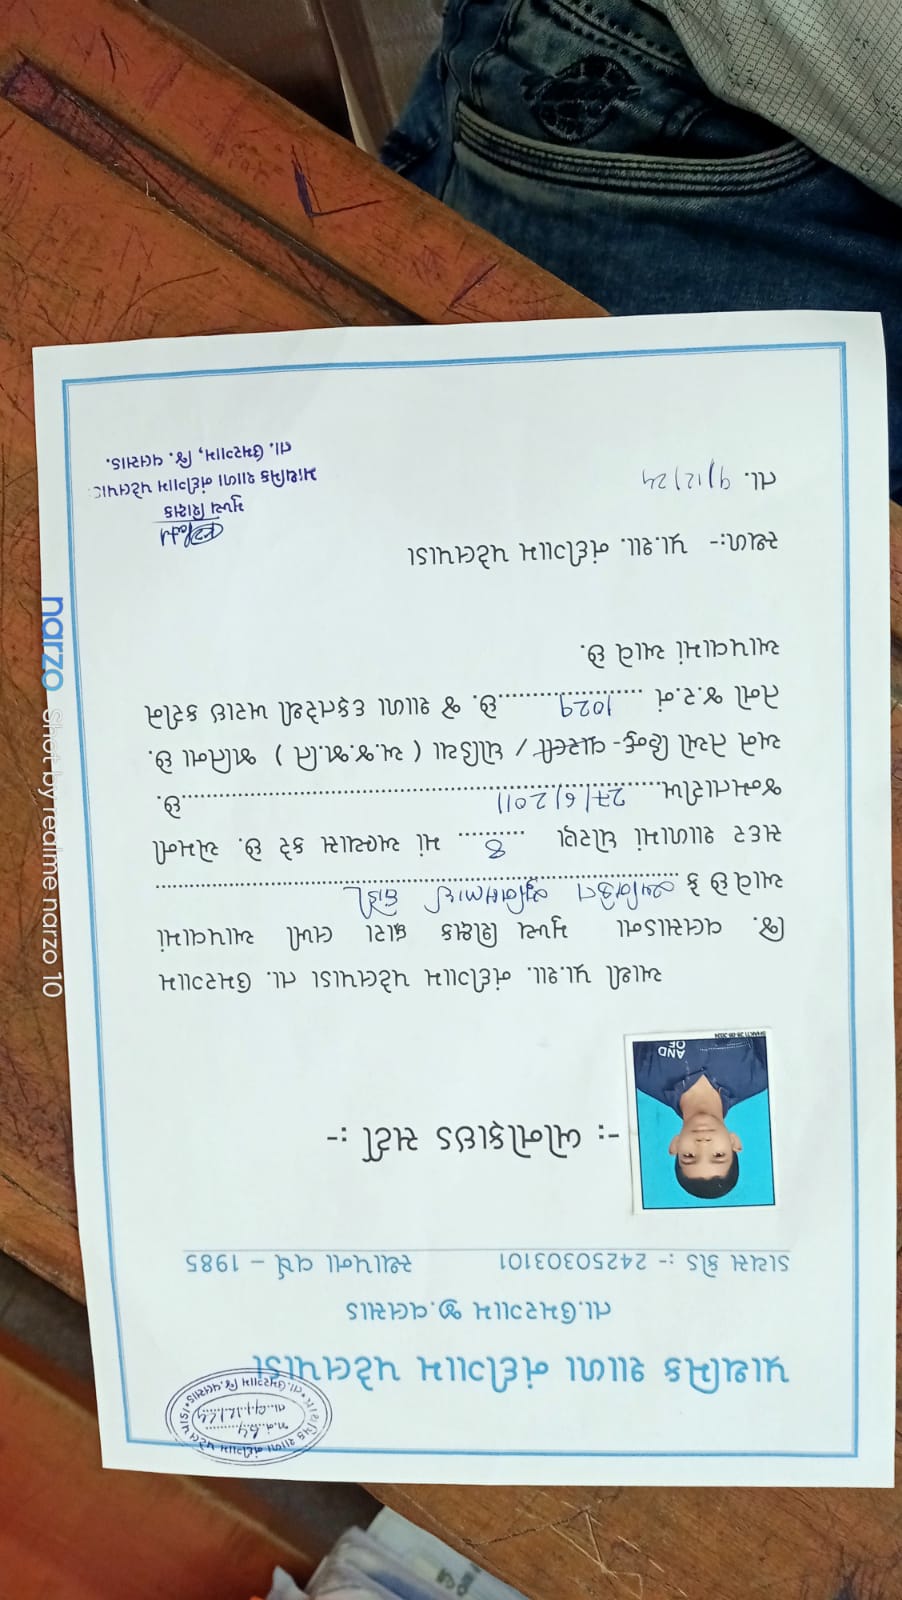 પ્રાથમિક શાળા નંદીગામ પટેલપાડા
તા.ઉમરગામ જી.વલસાડ
ડાયસ કોડ :- 24250303101 સ્થાપના વર્ષ – 1985
-: બોનોફાઇડ સર્ટી :-
આથી પ્રા.શા. નંદીગામ પટેલપાડા તા. ઉમરગામ
જિ. વલસાડના મુખ્ય શિક્ષક દ્વારા લખી આપવામાં
આવે છે કે
સદર શાળામાં ધોરણ 8 માં અભ્યાસ કરે છે. એમની
જન્મતારીખ 27/6/2011 છે.
અને તેઓ હિન્દુ- વારલી / ધોડિયા ( અ.જ.જાતિ ) જાતિના છે.
તેનો જ.ર.નં 1029 છે. જે શાળા દફતરેથી ખરાઇ કરીને
આપવામાં આવે છે.
સ્થળ:- પ્રા.શા. નંદીગામ પટેલપાડા
તા. 9/12/24
મુખ્ય શિક્ષક
પ્રાથમિક શાળા નંદીગામ પટેલપાડા
તા. ઉમરગામ, જિ. વલસાડ.
SHAKTI 28-08-2024
AND
OF
narzo Shot by realme narzo 10